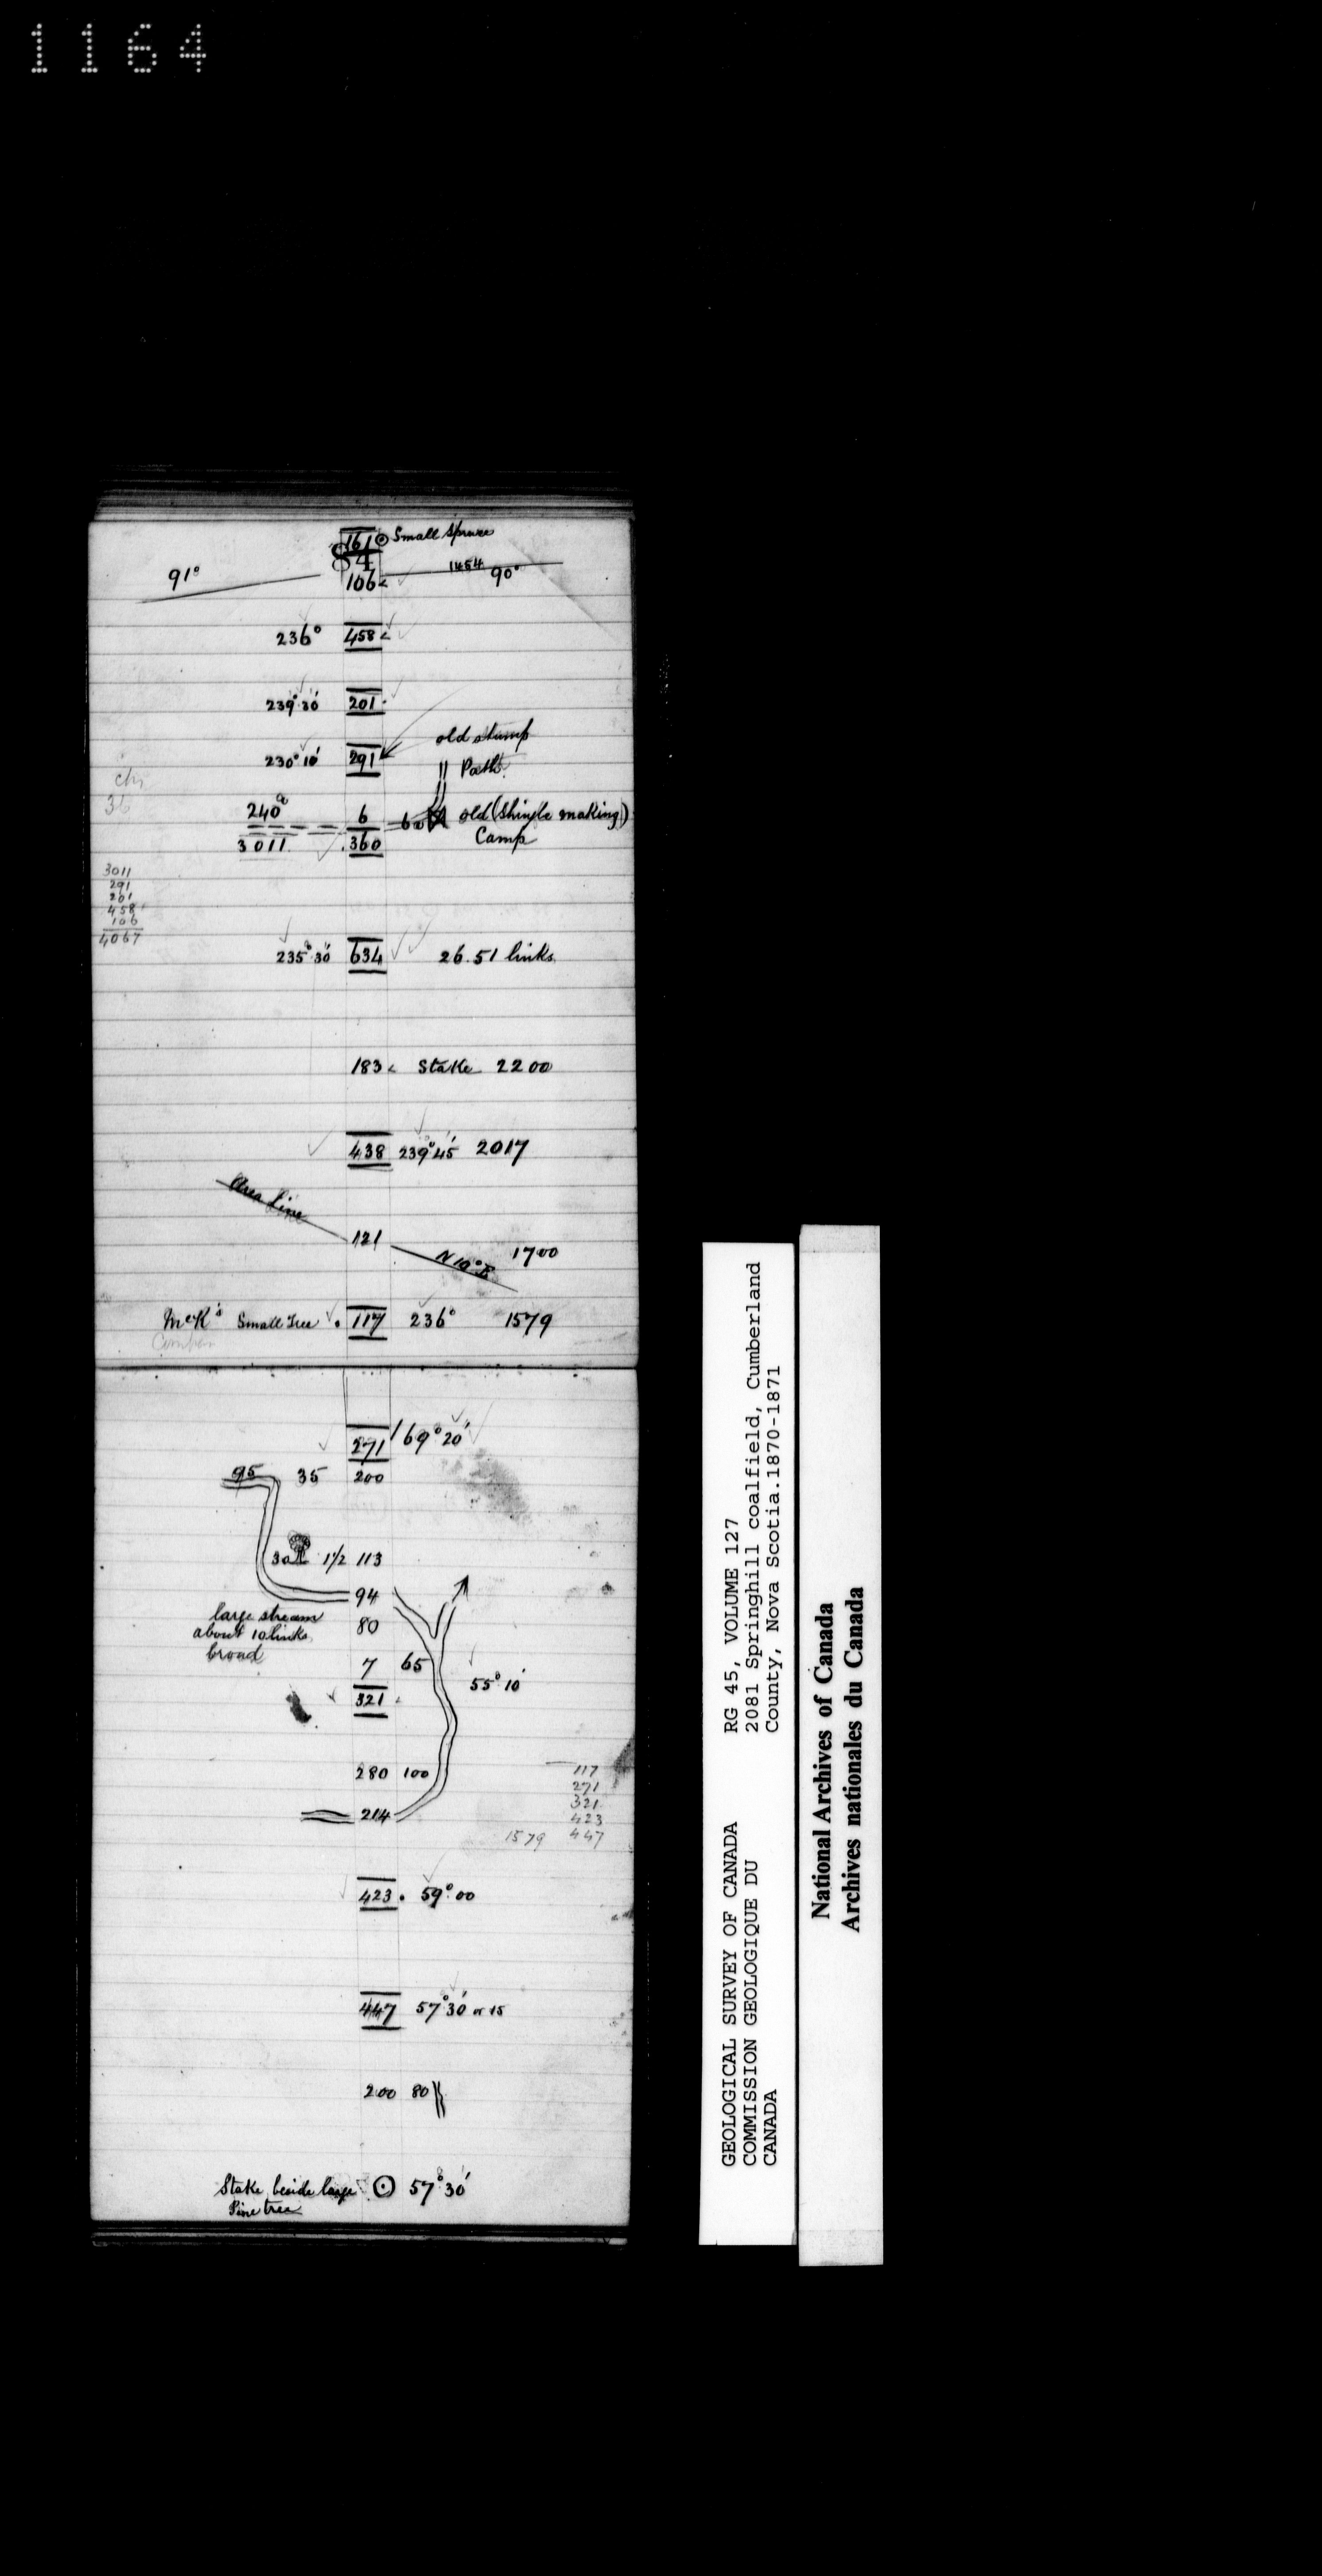 1164
161 ⊙ Small Spruce
84
91° 106 < 1454 90°
236° 458 <
239° 30' 201
old stump
230° 10' 291
Path
240° 6 60 old (Shingle making)
3011 360 Camp
3011
291
201
458
106
4067
235° 30' 634 26.51 links
183 < Stake 2200
438 239° 45' 2017
Area Line
121
N 10° E 1700
McK's Small Tree . 117 236° 1579
271 169° 20'
95 35 200
30 1 1/2 113
94
large stream 80
about 10 links
broad
7 65
55° 10'
321
280 100
214
117
271
321
423
1579 447
423 . 59° 00
447 57° 30' or 15
200 80
Stake beside large ⊙ 57° 30'
Pine tree
GEOLOGICAL SURVEY OF CANADA
COMMISSION GEOLOGIQUE DU
CANADA
RG 45, VOLUME 127
2081 Springhill coalfield, Cumberland
County, Nova Scotia.1870-1871
National Archives of Canada
Archives nationales du Canada